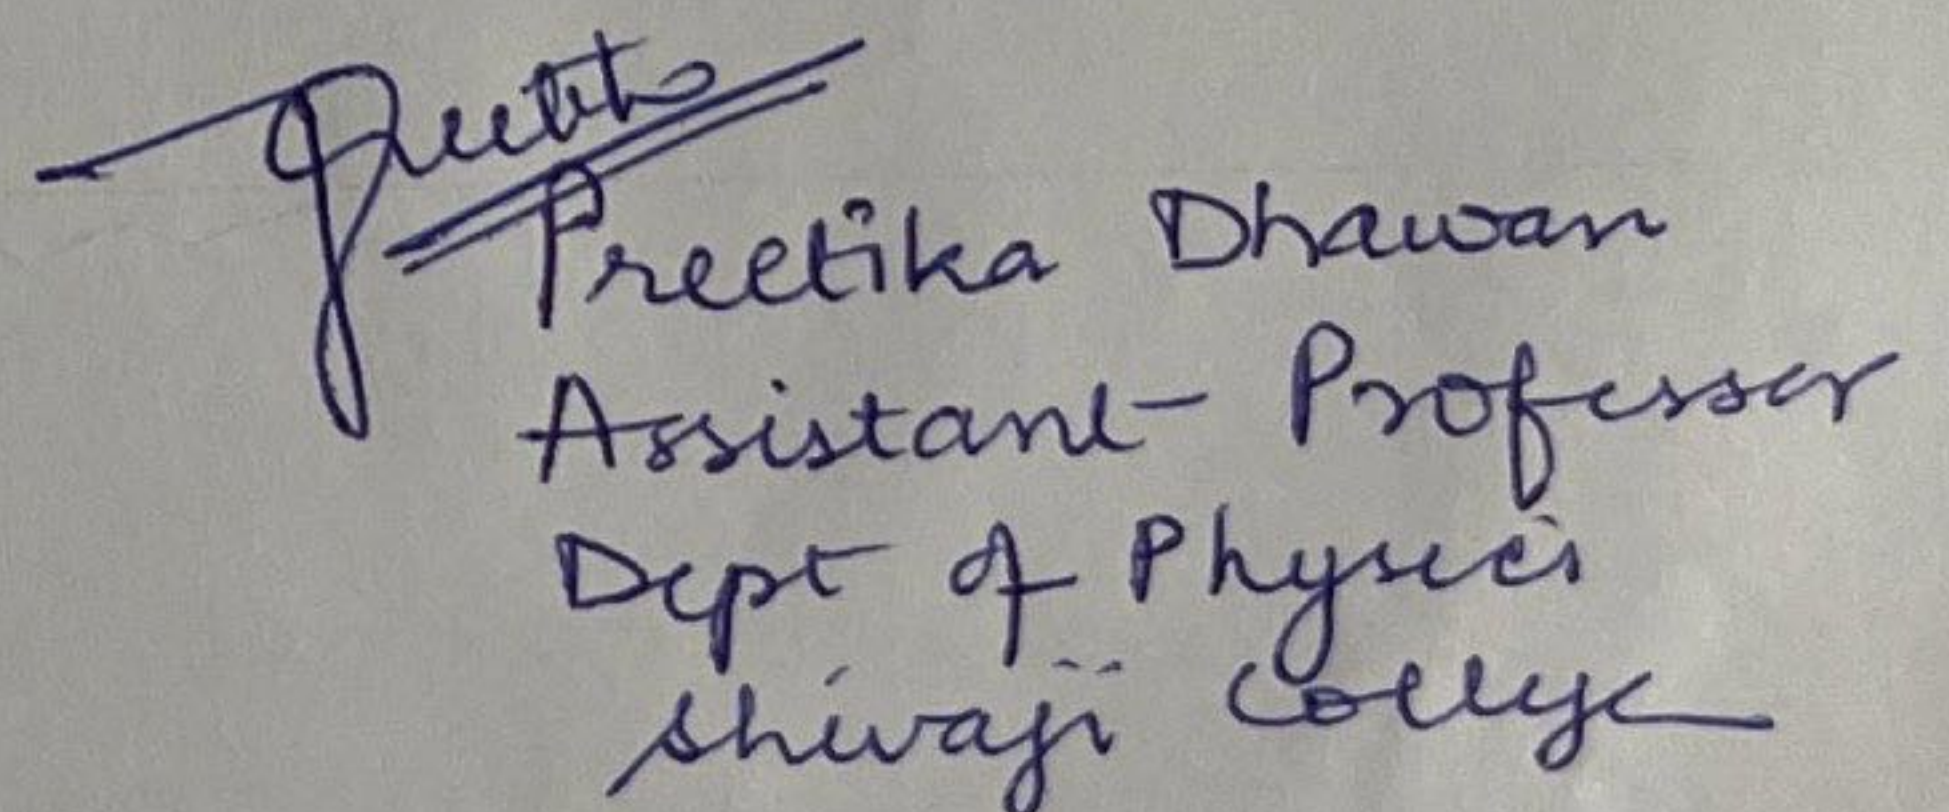 Preetika Dhawan
Assistant Professor
Dept of Physics
Shivaji College